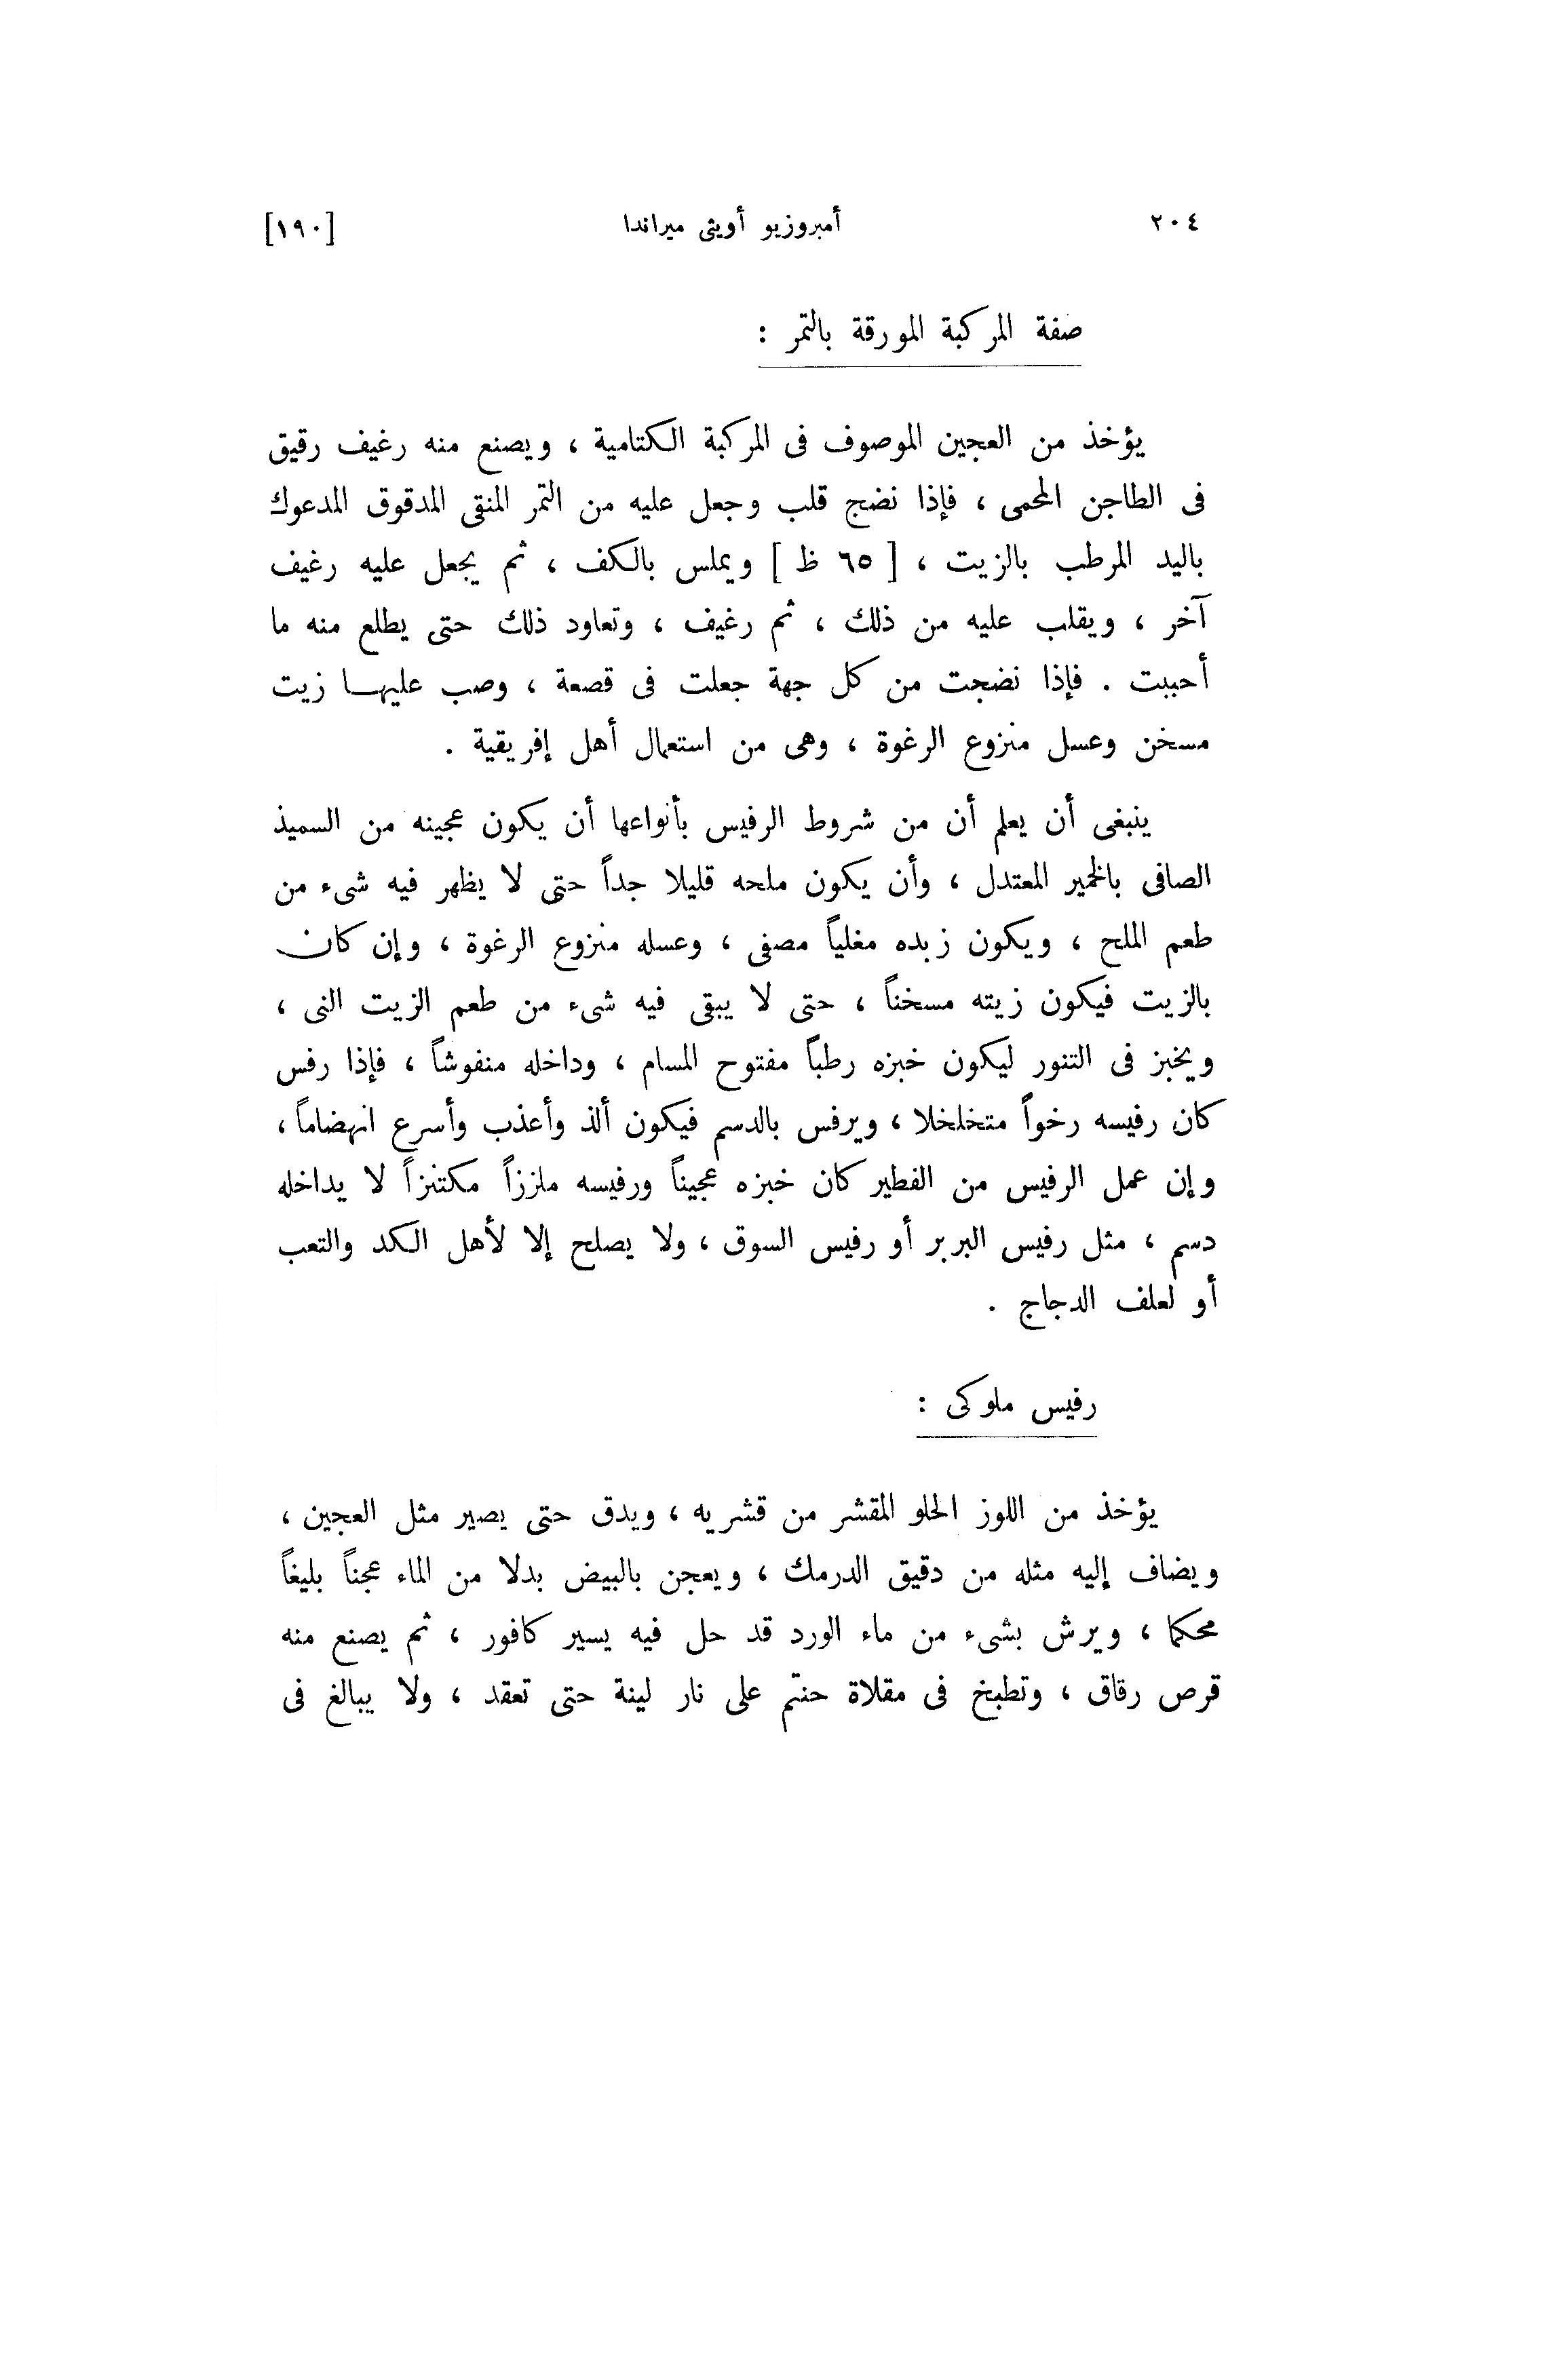 ٢٠٤ أمبروزيو أويثى ميراندا [١٩٠]
صفة المركبة المورقة بالتمر :
يؤخذ من العجين الموصوف فى المركبة الكتامية ، ويصنع منه رغيف رقيق
فى الطاجن المحمى ، فإذا نضج قلب وجعل عليه من التمر المنقى المدقوق المدعوك
باليد المرطب بالزيت ، [ ٦٥ ظ ] ويملس بالكف ، ثم يجعل عليه رغيف
آخر ، ويقلب عليه من ذلك ، ثم رغيف ، وتعاود ذلك حتى يطلع منه ما
أحببت . فإذا نضجت من كل جهة جعلت فى قصعة ، وصب عليها زيت
مسخن وعسل منزوع الرغوة ، وهى من استعمال أهل إفريقية .
ينبغى أن يعلم أن من شروط الرفيس بأنواعها أن يكون عجينه من السميذ
الصافى بالخمير المعتدل ، وأن يكون ملحه قليلا جداً حتى لا يظهر فيه شىء من
طعم الملح ، ويكون زبده مغلياً مصفى ، وعسله منزوع الرغوة ، وإن كان
بالزيت فيكون زيته مسخناً ، حتى لا يبقى فيه شىء من طعم الزيت النى ،
ويخبز فى التنور ليكون خبزه رطباً مفتوح المسام ، وداخله منفوشاً ، فإذا رفس
كان رفيسه رخواً متخلخلا ، ويرفس بالدسم فيكون ألذ وأعذب وأسرع انهضاماً ،
وإن عمل الرفيس من الفطير كان خبزه عجيناً ورفيسه ملززاً مكتنزاً لا يداخله
دسم ، مثل رفيس البربر أو رفيس السوق ، ولا يصلح إلا لأهل الكد والتعب
أو لعلف الدجاج .
رفيس ملوكى :
يؤخذ من اللوز الحلو المقشر من قشريه ، ويدق حتى يصير مثل العجين ،
ويضاف إليه مثله من دقيق الدرمك ، ويعجن بالبيض بدلا من الماء عجناً بليغاً
محكما ، ويرش بشىء من ماء الورد قد حل فيه يسير كافور ، ثم يصنع منه
قرص رقاق ، وتطبخ فى مقلاة حنتم على نار لينة حتى تعقد ، ولا يبالغ فى